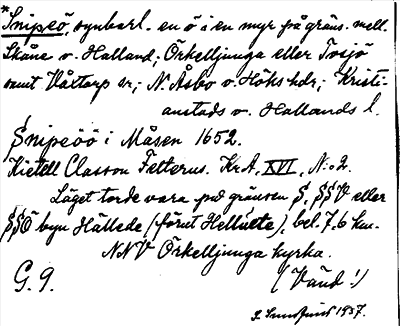 *Snipeö, synbarl. en ö i en myr på gräns. mell.
Skåne v. Halland; Örkelljunga eller Tosjö
samt Våxtorp sr; N. Åsbo v. Höks hdr; Kristi-
anstads v. Hallands l.
Snipeöö i Måsen 1652.
Kietell Classon Fetterus. Kr.A, XVI, N:o 2.
Läget torde vara på gränsen S, SSV eller
SSÖ byn Hällede (förut Hellüete), bel. 7,6 km.
NNV Örkelljunga kyrka.
G. 9. (Vänd!)
1937.